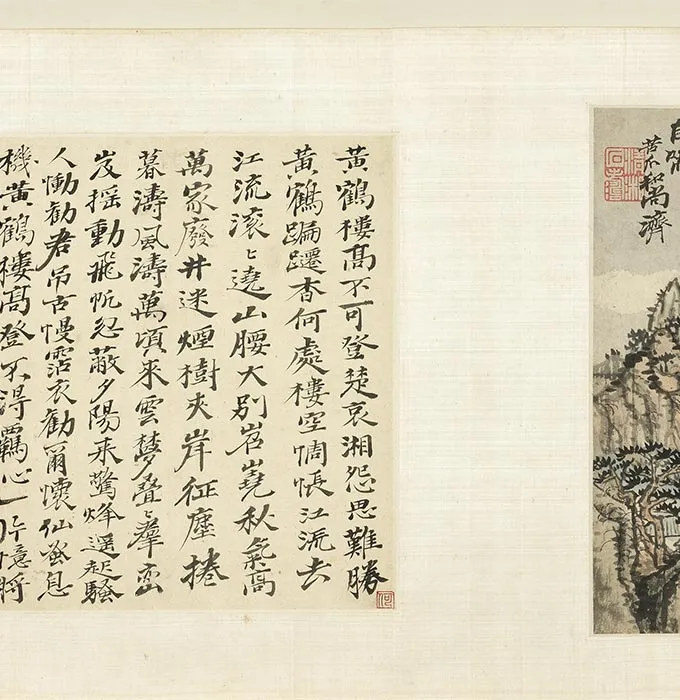 苦瓜和尚濟
黃鶴樓高不可登楚哀湘怨思難勝
黃鶴蹁躚杳何處樓空惆悵江流去
江流滾〻遶山腰大別岧嶤秋氣高
萬家廢井迷煙樹夾岸征塵捲
暮濤風濤萬頃來雲夢疊〻羣巒
岌搖動飛帆忽蔽夕陽來驚烽遥起騷
人慟勸君吊古慢霑衣勸爾懷仙蚤息
機黃鶴樓高登不得羈心一片憶將